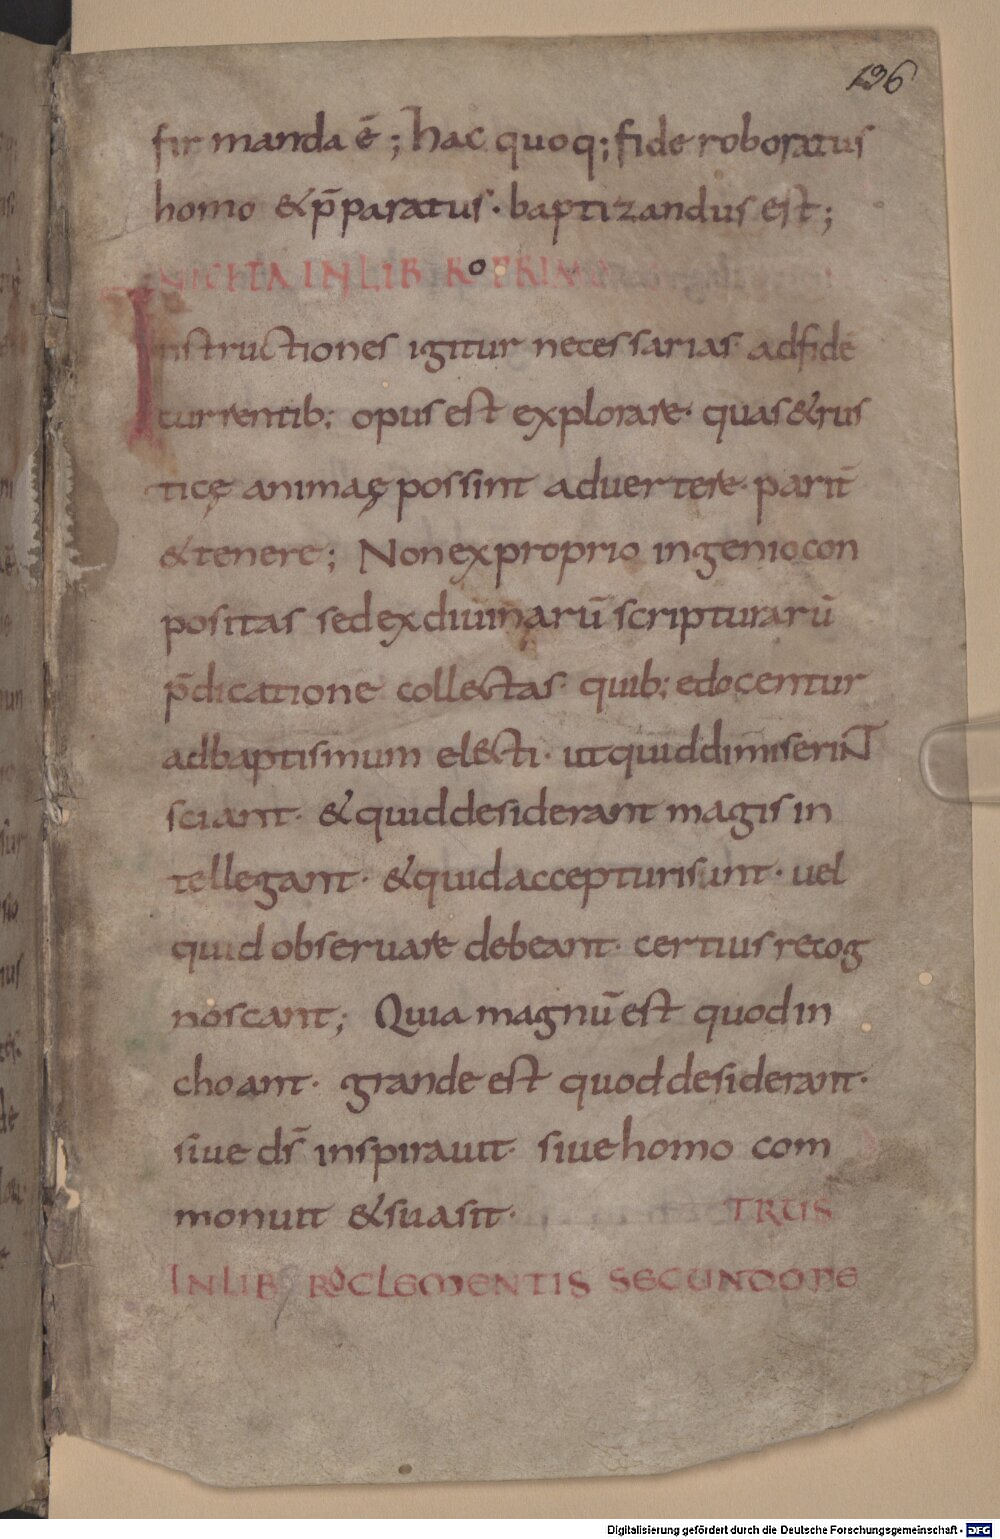 136
firmanda ē; hac quoq; fide roboratus
homo & p̄paratus · baptizandus est;
NICHTA IN LIBRO PRIM
Instructiones igitur necessarias ad fidē
currentib; opus est explorare · quas & rus
ticę animaę possint aduertere · parit̄
& tenere; Non ex proprio ingenio con
positas sed ex diuinarū scripturarū
p̄dicatione collectas · quib; edocentur
ad baptismum electi · ut quid dimiserint
sciant · & quid desiderant magis in
tellegant · & quid accepturi sunt · uel
quid obseruare debeant · certius recog
noscant; Quia magnū est quod in
choant · grande est quod desiderant ·
siue d̄s inspirauit · siue homo com
monuit & suasit · TRUS
IN LIBRO CLEMENTIS SECUNDO PE
Digitalisierung gefördert durch die Deutsche Forschungsgemeinschaft - DFG